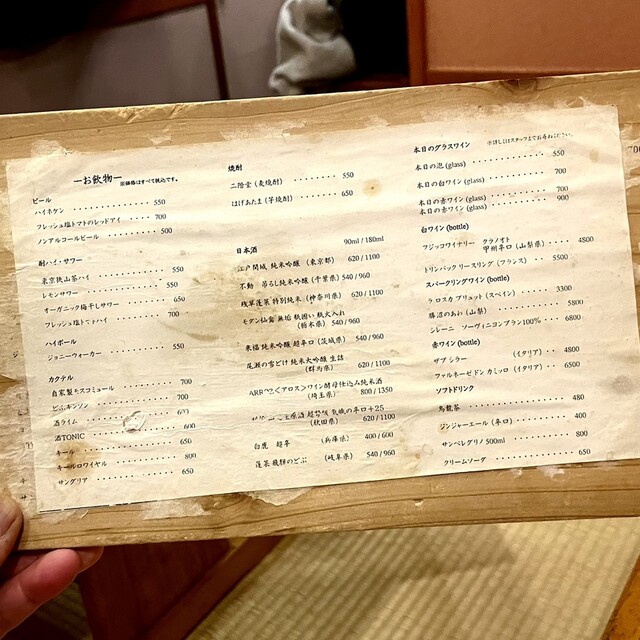 —お飲物—
※価格はすべて税込です。
ビール
ハイネケン 550
フレッシュ塩トマトのレッドアイ 700
ノンアルコールビール 500
酎ハイ・サワー
東京狭山茶ハイ 550
レモンサワー 550
オーガニック梅干しサワー 650
フレッシュ塩トマトハイ 700
ハイボール
ジョニーウォーカー 550
カクテル
自家製モスコミュール 700
ビふキンソン 700
酒ライム
酒TONIC 600
キール 650
キールロワイヤル 800
サングリア 650
焼酎
二階堂 (麦焼酎) 550
はげあたま (芋焼酎) 650
日本酒 90ml / 180ml
江戸開城 純米吟醸 (東京都) 620 / 1100
不動 吊るし純米吟醸 (千葉県) 540 / 960
浅草蓬莱 特別純米 (神奈川県) 620 / 1100
モダン仙禽 無垢 瓶囲い 瓶火入れ
(栃木県) 540 / 960
来福 純米吟醸 超辛口 (茨城県) 540 / 960
尾瀬の雪どけ 純米大吟醸 生詰
(群馬県) 620 / 1100
<アロス>ワイン酵母仕込み純米酒
(埼玉県) 800 / 1350
原酒 超辛口 気魄の辛口+25
(秋田県) 620 / 1100
白鹿 超辛 (兵庫県) 400 / 600
蓬莱 飛騨のどぶ (岐阜県) 540 / 960
本日のグラスワイン ※詳しくはスタッフまでお尋ねください。
本日の泡 (glass) 550
本日の白ワイン (glass) 700
本日の赤ワイン (glass) 700
本日の赤ワイン (glass) 900
白ワイン (bottle)
フジッコワイナリー クラノオト
甲州辛口 (山梨県) 4800
トリンバック リースリング (フランス) 5500
スパークリングワイン (bottle)
ラ ロスカ ブリュット (スペイン) 3300
勝沼のあわ (山梨) 5800
シレーニ ソーヴィニヨンブラン100% 6800
赤ワイン (bottle)
ザブ シラー (イタリア) 4800
ファルネーゼ ドン カミッロ (イタリア) 6500
ソフトドリンク
烏龍茶 480
ジンジャーエール (辛口) 400
サンペレグリノ 500ml 800
クリームソーダ 650